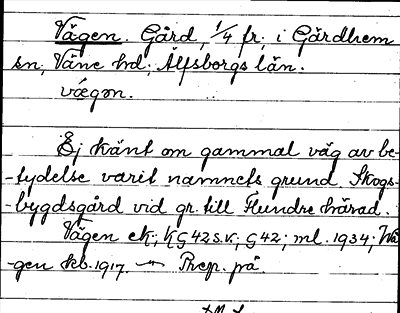 Vägen. Gård, 1/4 fr, i Gärdhem
sn, Väne hd; Älfsborgs län.
vǽgən.
Ej känt om gammal väg av be-
-tydelse varit namnets grund. Skogs-
-bygdsgård vid gr. till Flundre härad.
Vägen ek; KG42s.v.; G42; ml. 1934; Wä
-gen kb. 1917. — Prep. på